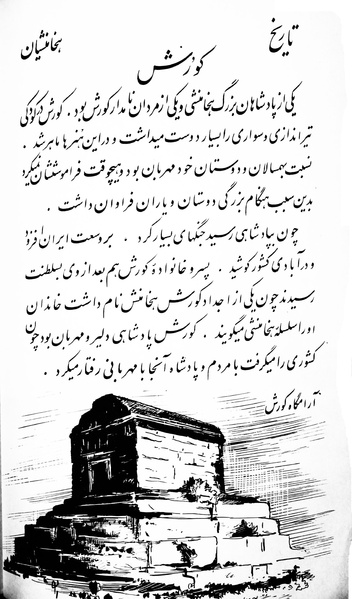 تاریخ
هخامنشیان
کورش
یکی از پادشاهان بزرگ هخامنشی و یکی از مردان نامدار کورش بود. کورش در کودکی
تیراندازی و سواری را بسیار دوست میداشت و در این هنرها ماهر شد.
نسبت بهمسالان و دوستان خود مهربان بود و هیچوقت فراموششان نمیکرد
بدین سبب هنگام بزرگی دوستان و یاران فراوان داشت.
چون بپادشاهی رسید جنگهای بسیار کرد. بر وسعت ایران افزود
و در آبادی کشور کوشید. پسر و خانوادهٔ کورش هم بعد از وی بسلطنت
رسیدند چون یکی از اجداد کورش هخامنش نام داشت خاندان
او را سلسلهٔ هخامنشی میگویند. کورش پادشاهی دلیر و مهربان بود چون
کشوری را میگرفت با مردم و پادشاه آنجا با مهربانی رفتار میکرد.
آرامگاه کورش